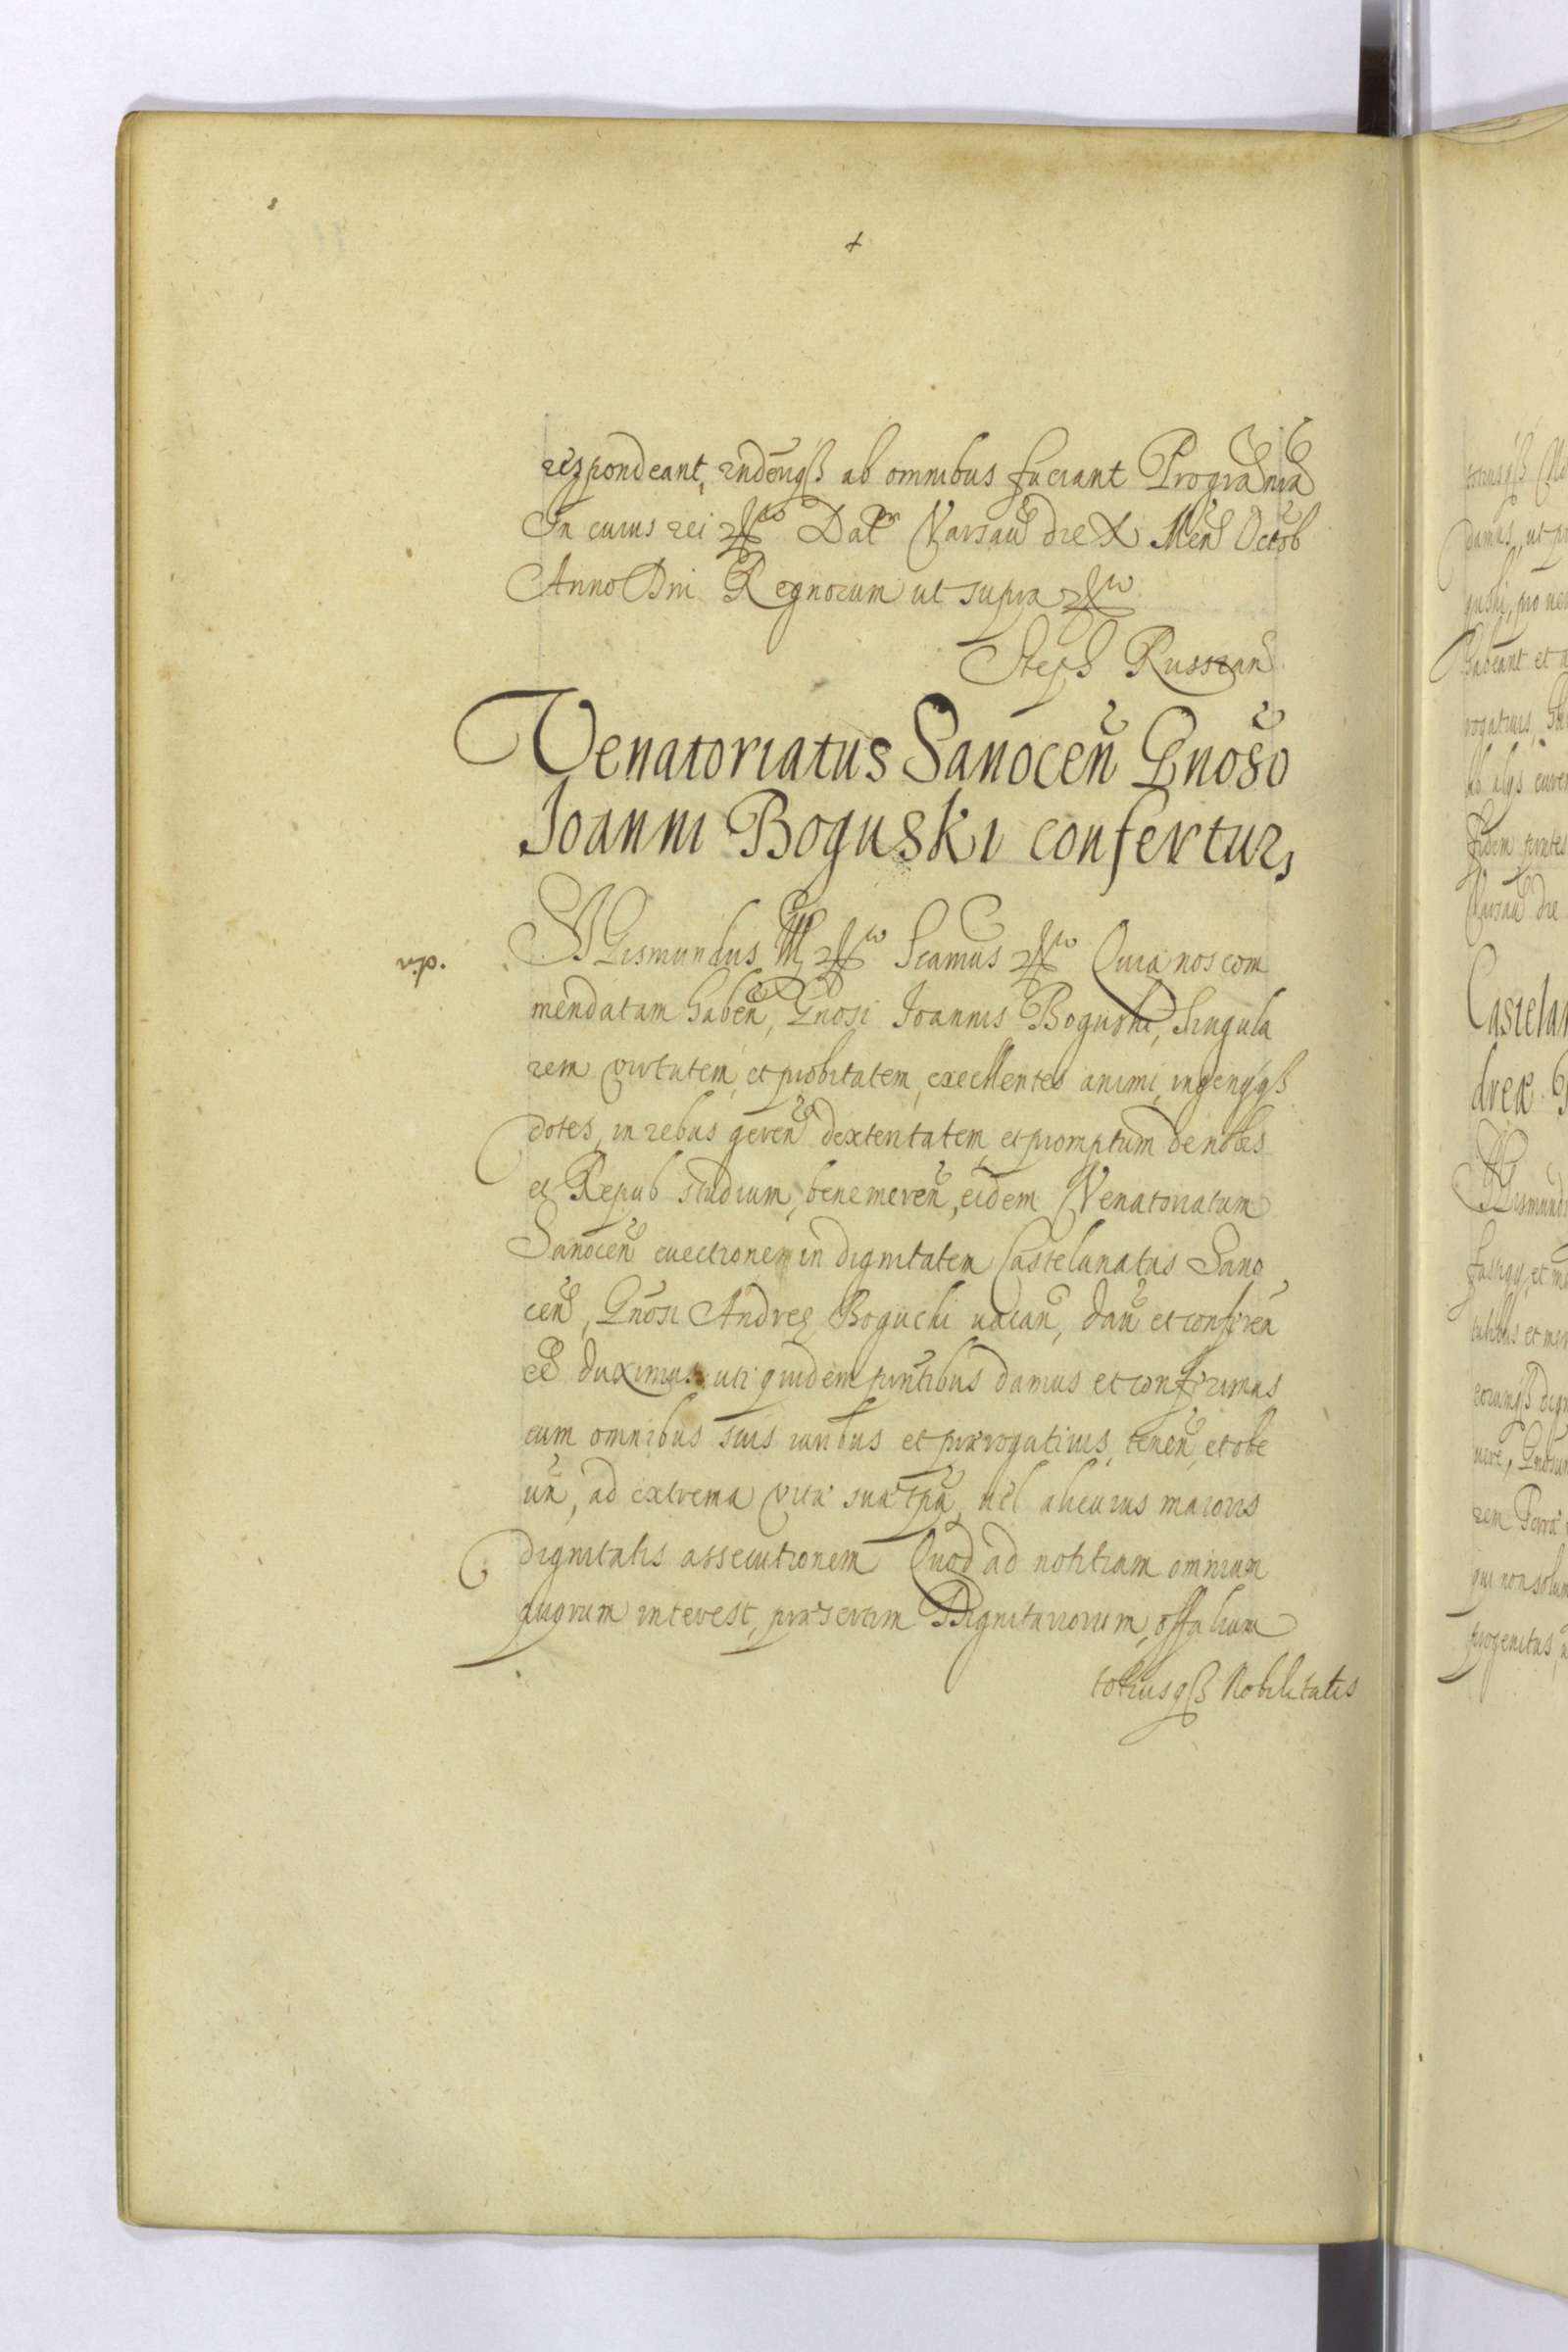 respondeant, indeq̃ꝫ ab omnibus faciant
In cuius rei Dat Varsaũ die X Mens̃ Octob
Anno Dni Regnorum ut supra
Steph Russzan
Venatoriatus Sanoceñ Gnoso
Joanni Boguski confertur,
Sigismundus III Scamus Quia nos com
mendatam habeñ, Gnosi Joannis Boguski, singula
rem virtutem, et probitatem, excellentes animi, ingenijqꝫ
dotes, in rebus gereñ dexteritatem, et promptum de nobis
et Repub studium, bene mereñ, eidem Venatoriatum
Sanoceñ euectionem in dignitatem Castelanatus Sano
ceñ, Gnosi Andreę Boguski uacañ, dañ et confereñ
eẽ duximus uti quidem pñtibus damus et conferimus
cum omnibus suis iuribus et prærogatiuis, teneñ, et obe
uñ, ad extrema vitæ suæ tpã, uel alicuius maioris
dignitatis assecutionem Quod ad notitiam omnium
quorum interest, præsertim Dignitariorum, offalium
totiusqꝫ Nobilitatis
totiusqꝫ
damus, ut
guski, pro
habeant et
rogatiuis,
ab alijs
fidem pñtes
Varsaũ die
Castelan
dreæ
Sigismund
fastigij, et
et
dign
Gnosum
rem Terræ
qui non solum
progenitus,